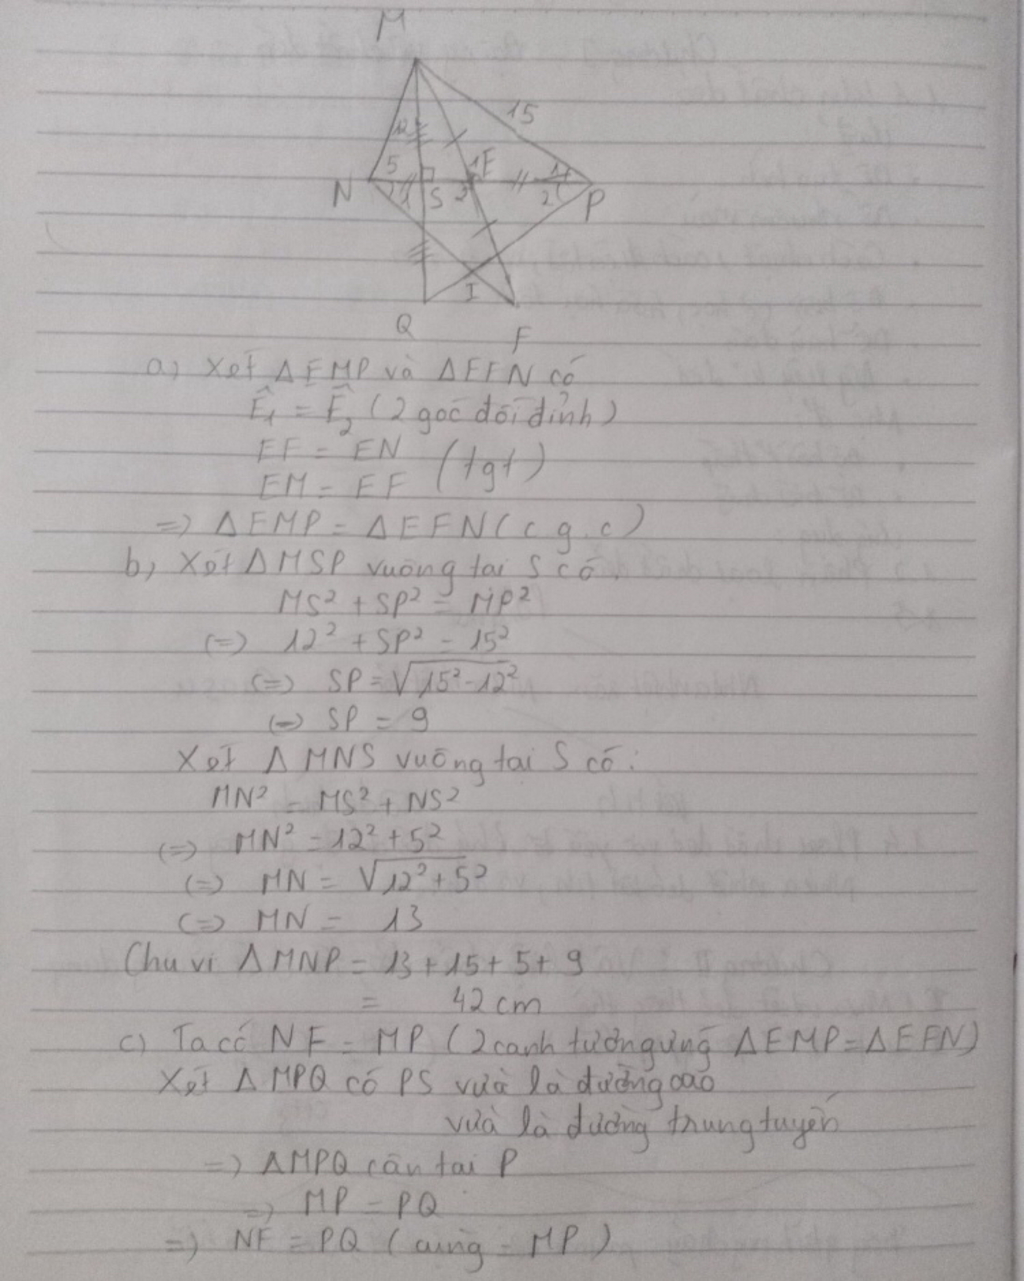 M
15
12
5
1 E
1
N
1
S
2
2
P
I
Q
F
a) Xét ΔEMP và ΔEFN có
Ê₁ = Ê₂ (2 góc đối đỉnh)
EF = EN
(tgt)
EM = EF
=> ΔEMP = ΔEFN (c g.c)
b, Xét ΔMSP vuông tại S có:
MS² + SP² = MP²
(=) 12² + SP² = 15²
(=) SP = √15²-12²
(=) SP = 9
Xét ΔMNS vuông tại S có:
MN² = MS² + NS²
(=) MN² = 12² + 5²
(=) MN = √12² + 5²
(=) MN = 13
Chu vi ΔMNP = 13 + 15 + 5 + 9
= 42 cm
c) Ta có NF = MP (2 cạnh tương ứng ΔEMP = ΔEFN)
Xét ΔMPQ có PS vừa là đường cao
vừa là đường trung tuyến
=) ΔMPQ cân tại P
=) MP = PQ
=) NF = PQ (cùng = MP)